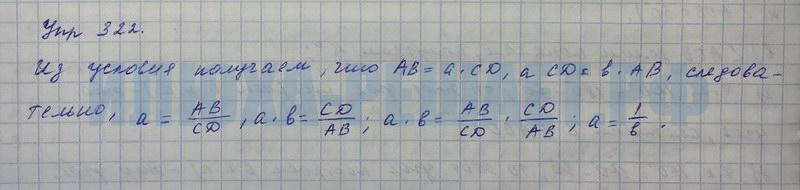 Упр 322.
Из условия получаем, что AB = a · CD, а CD = b · AB, следова-
тельно, a = AB/CD, a · b = CD/AB; a · b = AB/CD · CD/AB; a = 1/b.